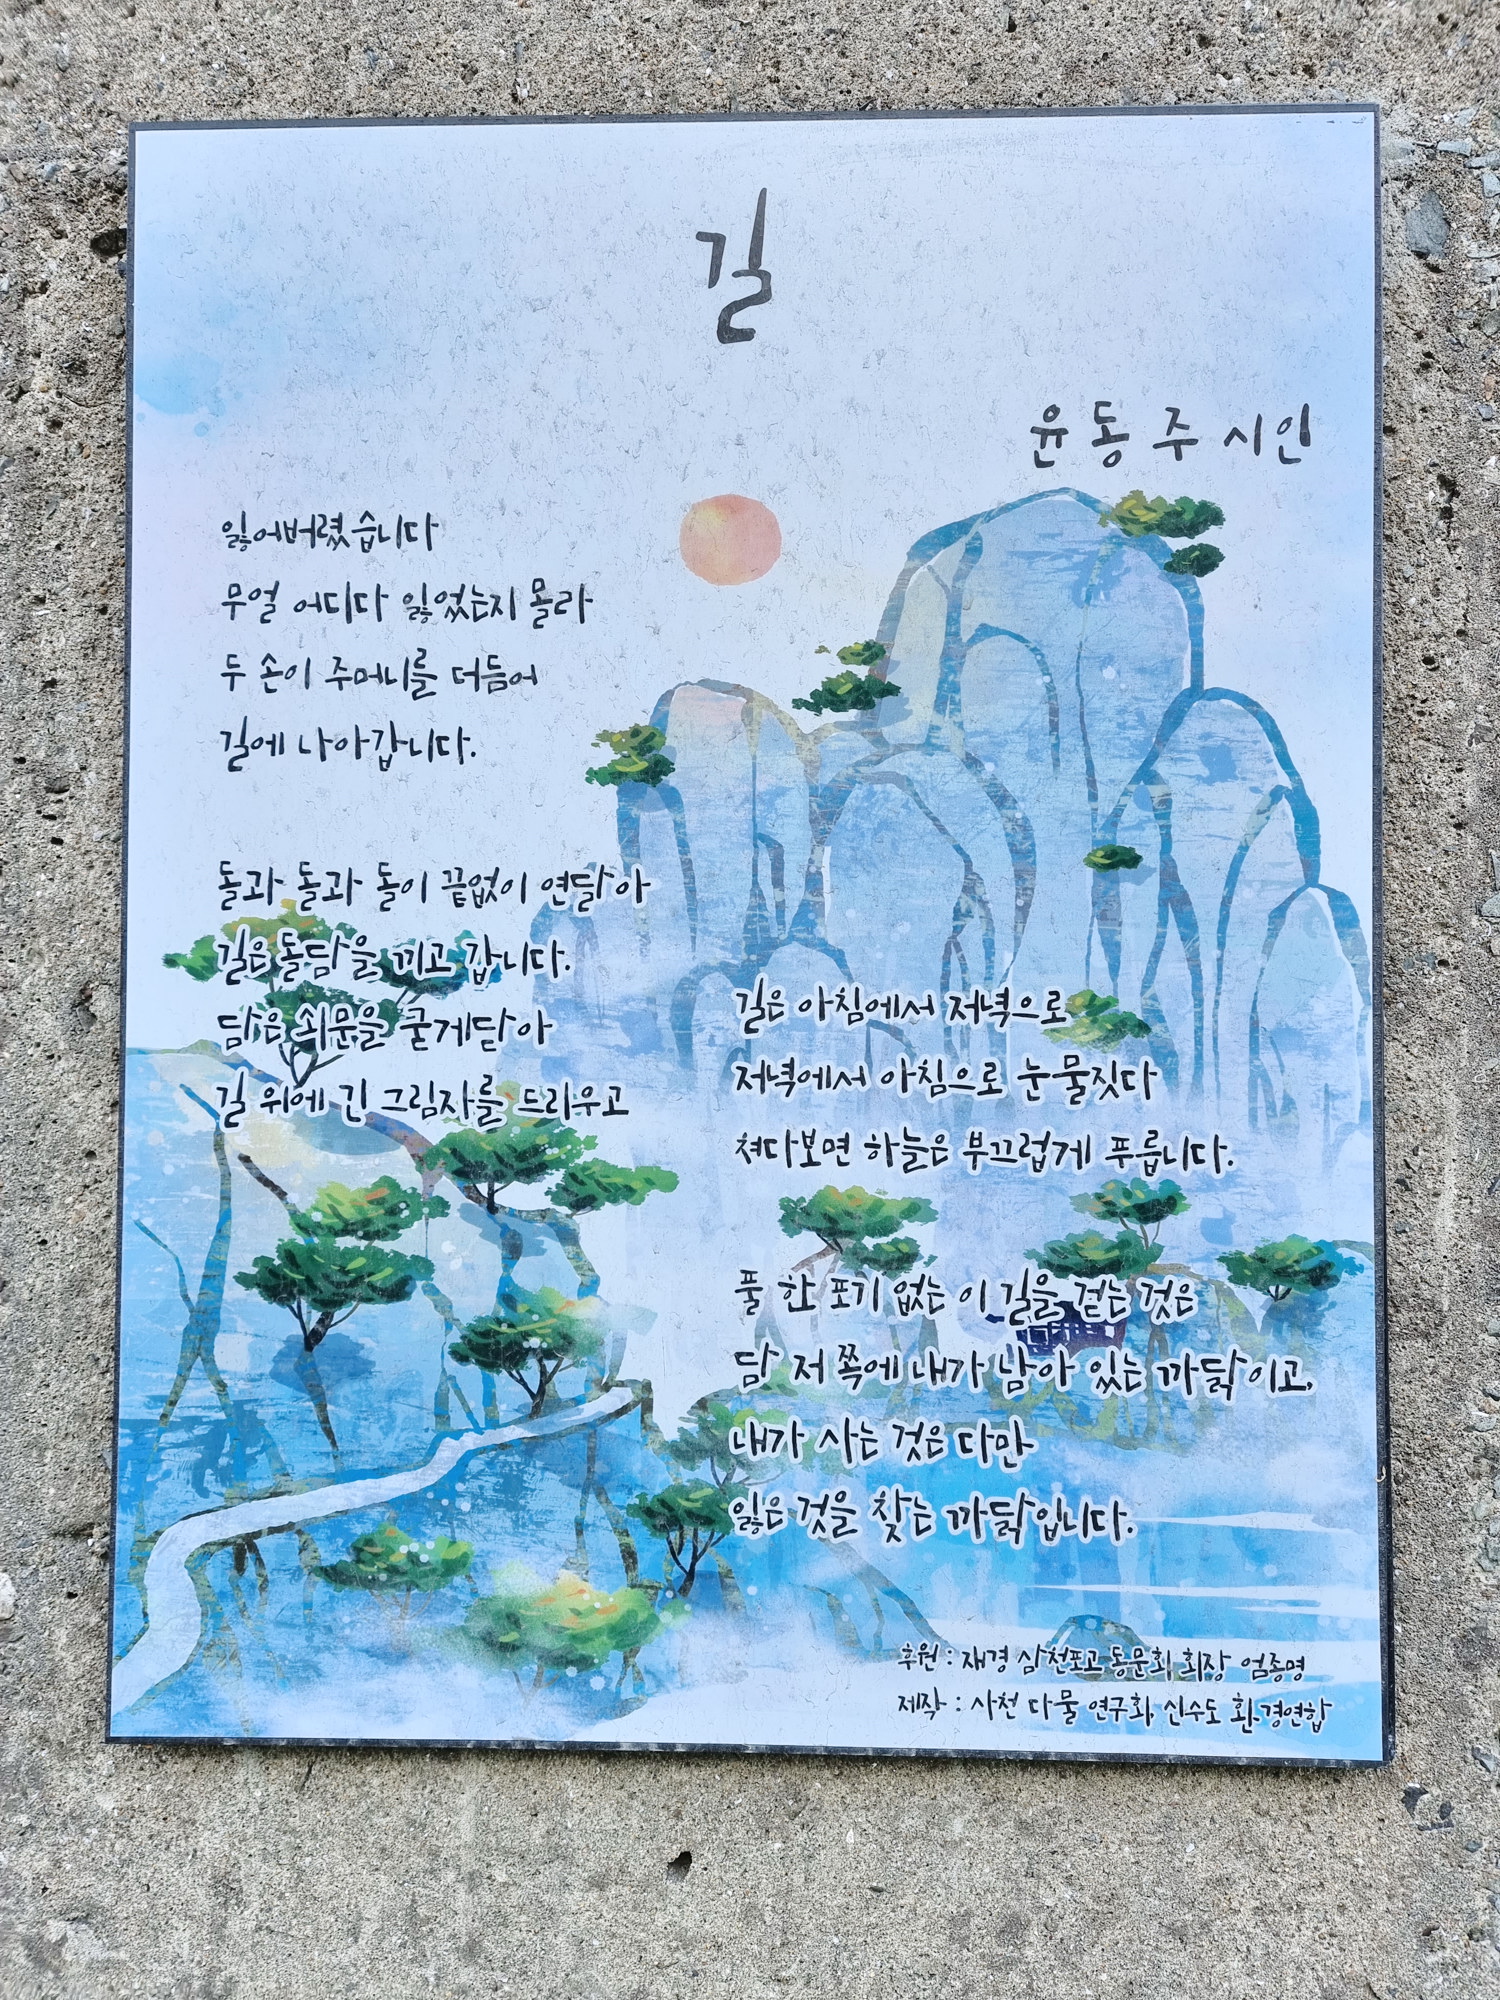 길
윤동주 시인
잃어버렸습니다
무얼 어디다 잃었는지 몰라
두 손이 주머니를 더듬어
길에 나아갑니다.
돌과 돌과 돌이 끝없이 연달아
길은 돌담을 끼고 갑니다.
담은 쇠문을 굳게닫아
길 위에 긴 그림자를 드리우고
길은 아침에서 저녁으로
저녁에서 아침으로 눈물짓다
쳐다보면 하늘은 부끄럽게 푸릅니다.
풀 한 포기 없는 이 길을 걷는 것은
담 저 쪽에 내가 남아 있는 까닭이고,
내가 사는 것은 다만
잃은 것을 찾는 까닭입니다.
후원 : 재경 삼천포고 동문회 회장 엄종명
제작 : 사천 다물 연구회, 신수도 환경연합